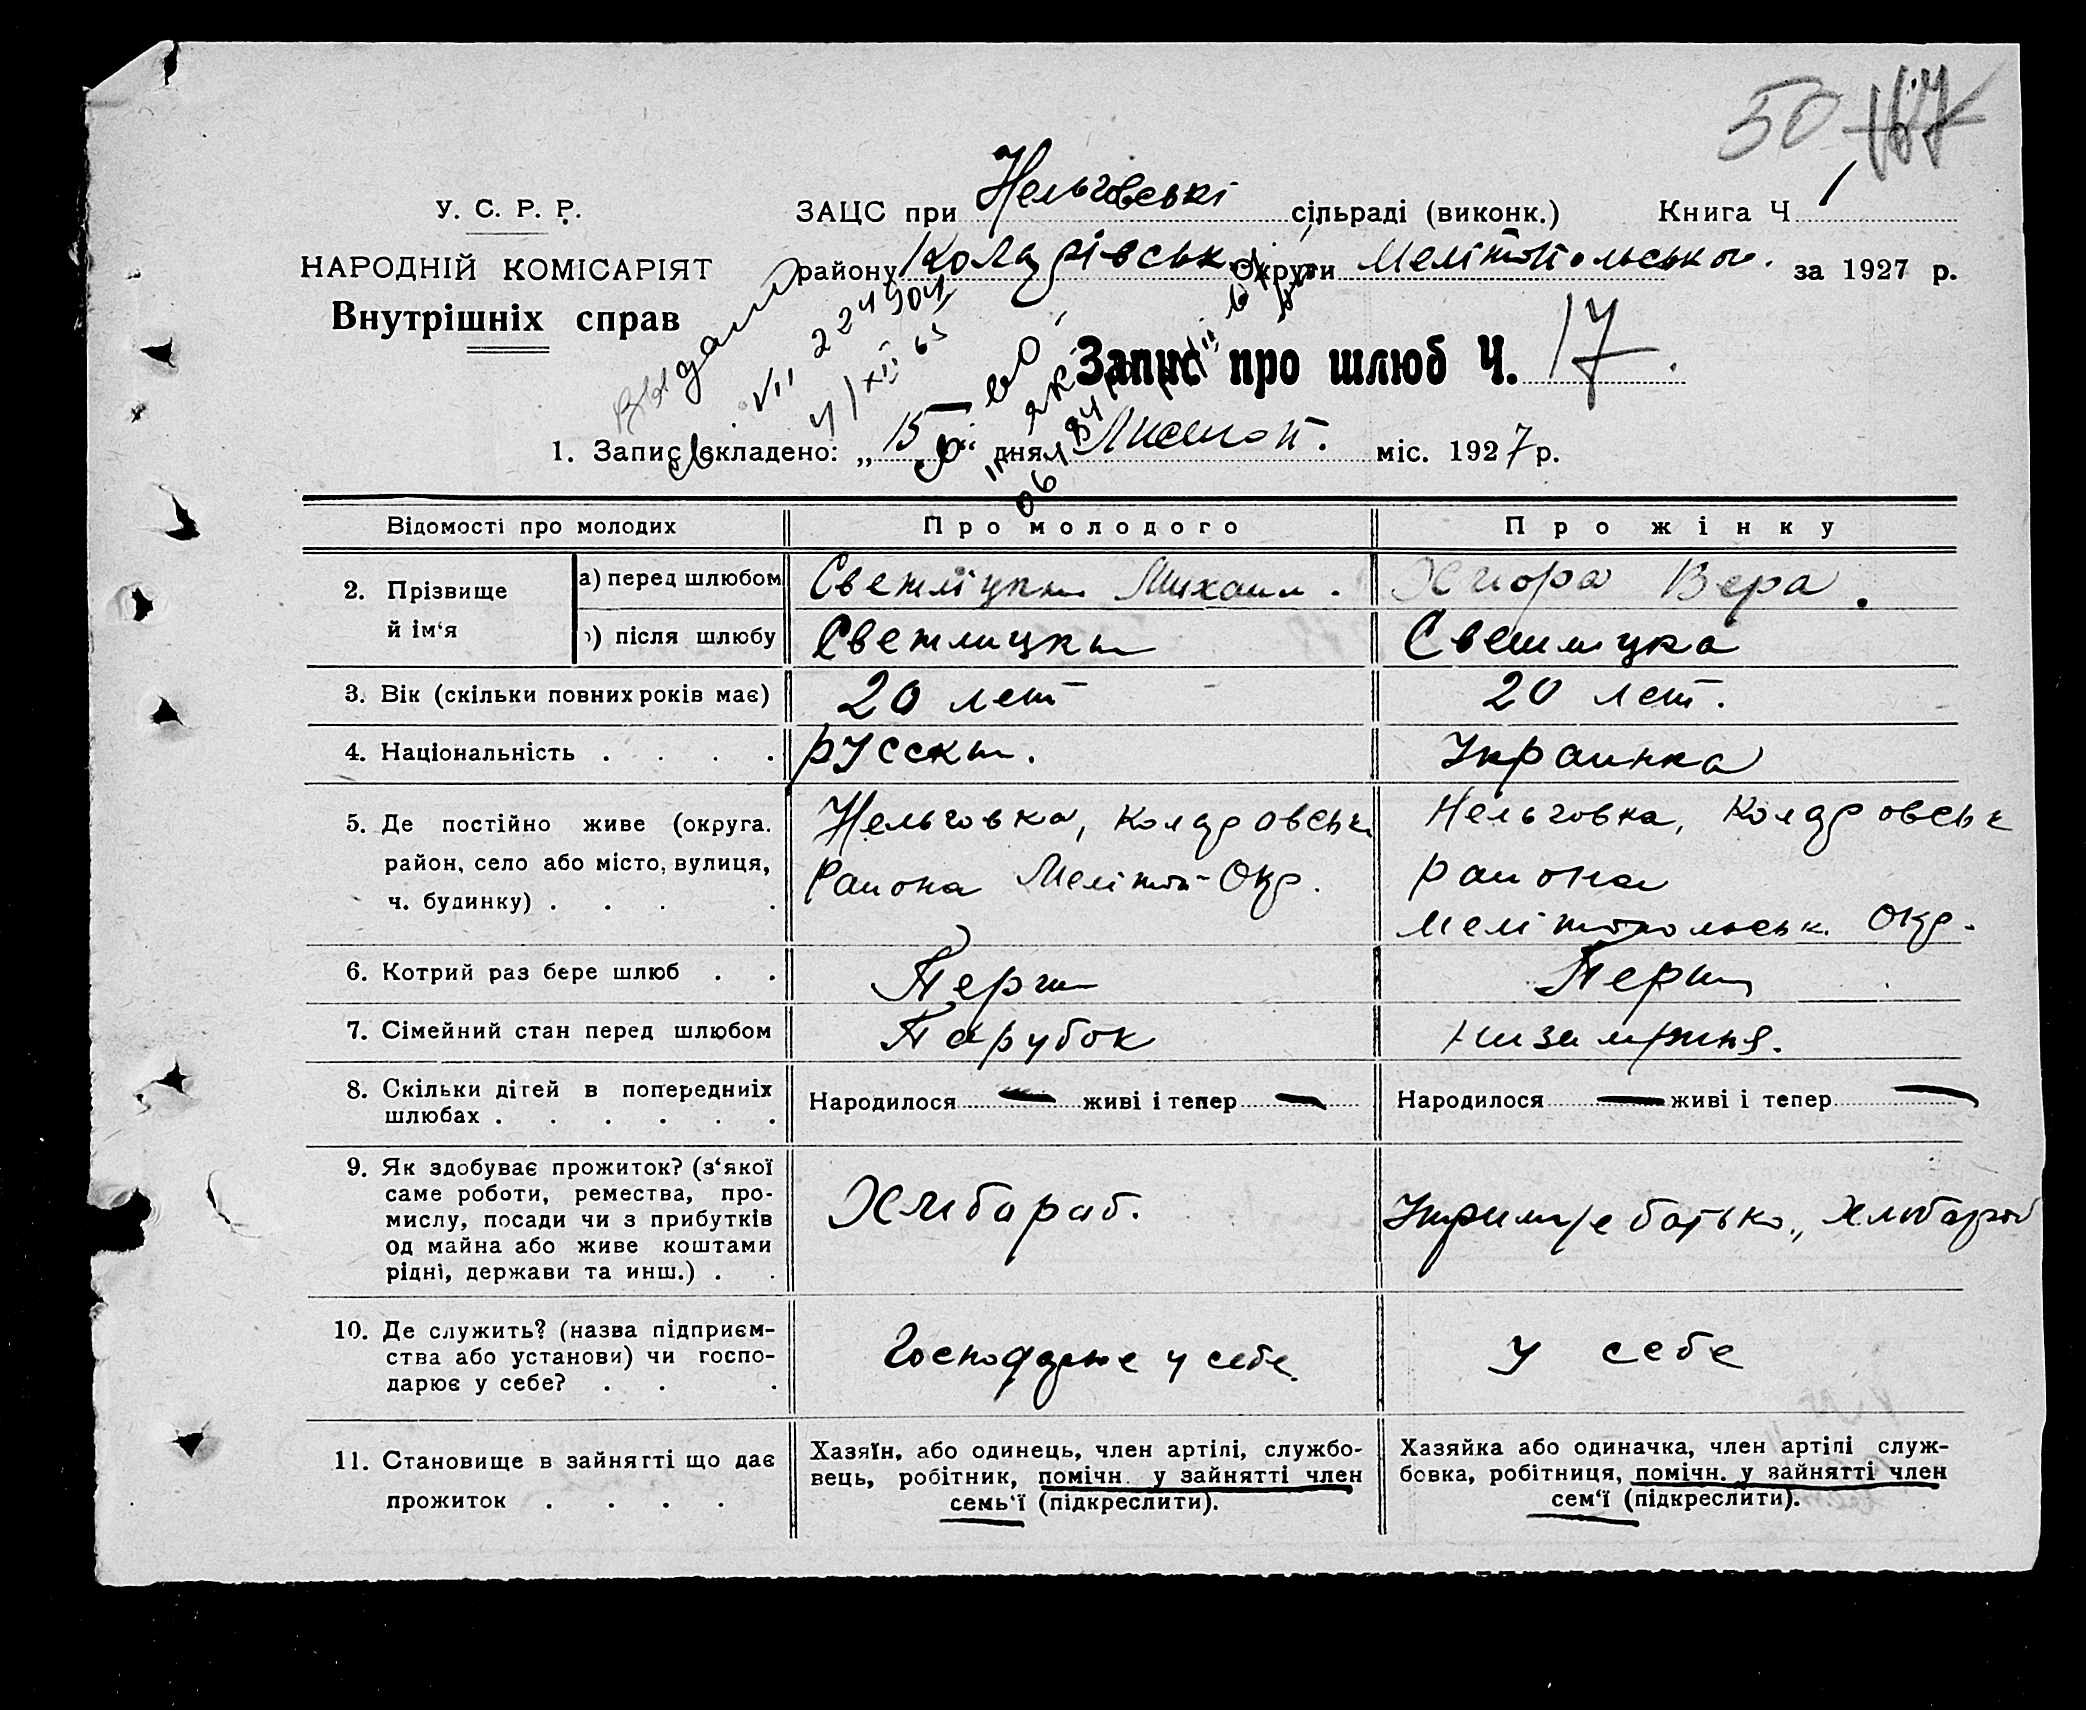 50 167
У. С. Р. Р.
НАРОДНІЙ КОМІСАРІЯТ
Внутрішніх справ
ЗАЦС при Нельговські сільраді (виконк.) Книга Ч 1
району Коларівськ округи Мелітопольськои. за 1927 р.
Выдано
VII 224904
4/XII 65
Запис про шлюб Ч. 17.
1. Запис складено: „15" дня Листоп. міс. 1927 р.
Відомості про молодих Про молодого Про жінку
2. Прізвище й ім'я
а) перед шлюбом Светліцкы Михаил. Вера.
б) після шлюбу Светлицкы Светлицка
3. Вік (скільки повних років має) 20 лет 20 лет.
4. Національність . . . . русскы. Украинка
5. Де постійно живе (округа. Нельговка, Колдровськ Нельговка, Колдровськ
район, село або місто, вулиця, Района Меліт- Окр. района
ч. будинку) . . . . Мелітопольськ. Окр.
6. Котрий раз бере шлюб . . Перш Перш
7. Сімейний стан перед шлюбом Парубок
8. Скільки дітей в попередниіх Народилося — живі і тепер — Народилося — живі і тепер —
шлюбах . . . . . .
9. Як здобуває прожиток? (з'якої
саме роботи, ремества, про-
мислу, посади чи з прибутків Хлібараб. батько,
од майна або живе коштами
рідні, держави та инш.) . .
10. Де служить? (назва підприєм-
ства або установи) чи госпо- Господарює у себе У себе
дарює у себе? . . .
11. Становище в зайнятті що дає
прожиток . . . .
Хазяїн, або одинець, член артілі, службо-
вець, робітник, помічн. у зайнятті член
семь'ї (підкреслити).
Хазяйка або одиначка, член артілі служ-
бовка, робітниця, помічн. у зайнятті член
сем'ї (підкреслити).